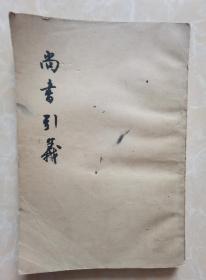 尚書引義